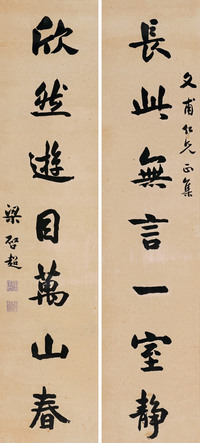 文甫仁兄正集
長此無言一室靜
欣然遊目萬山春
梁啓超